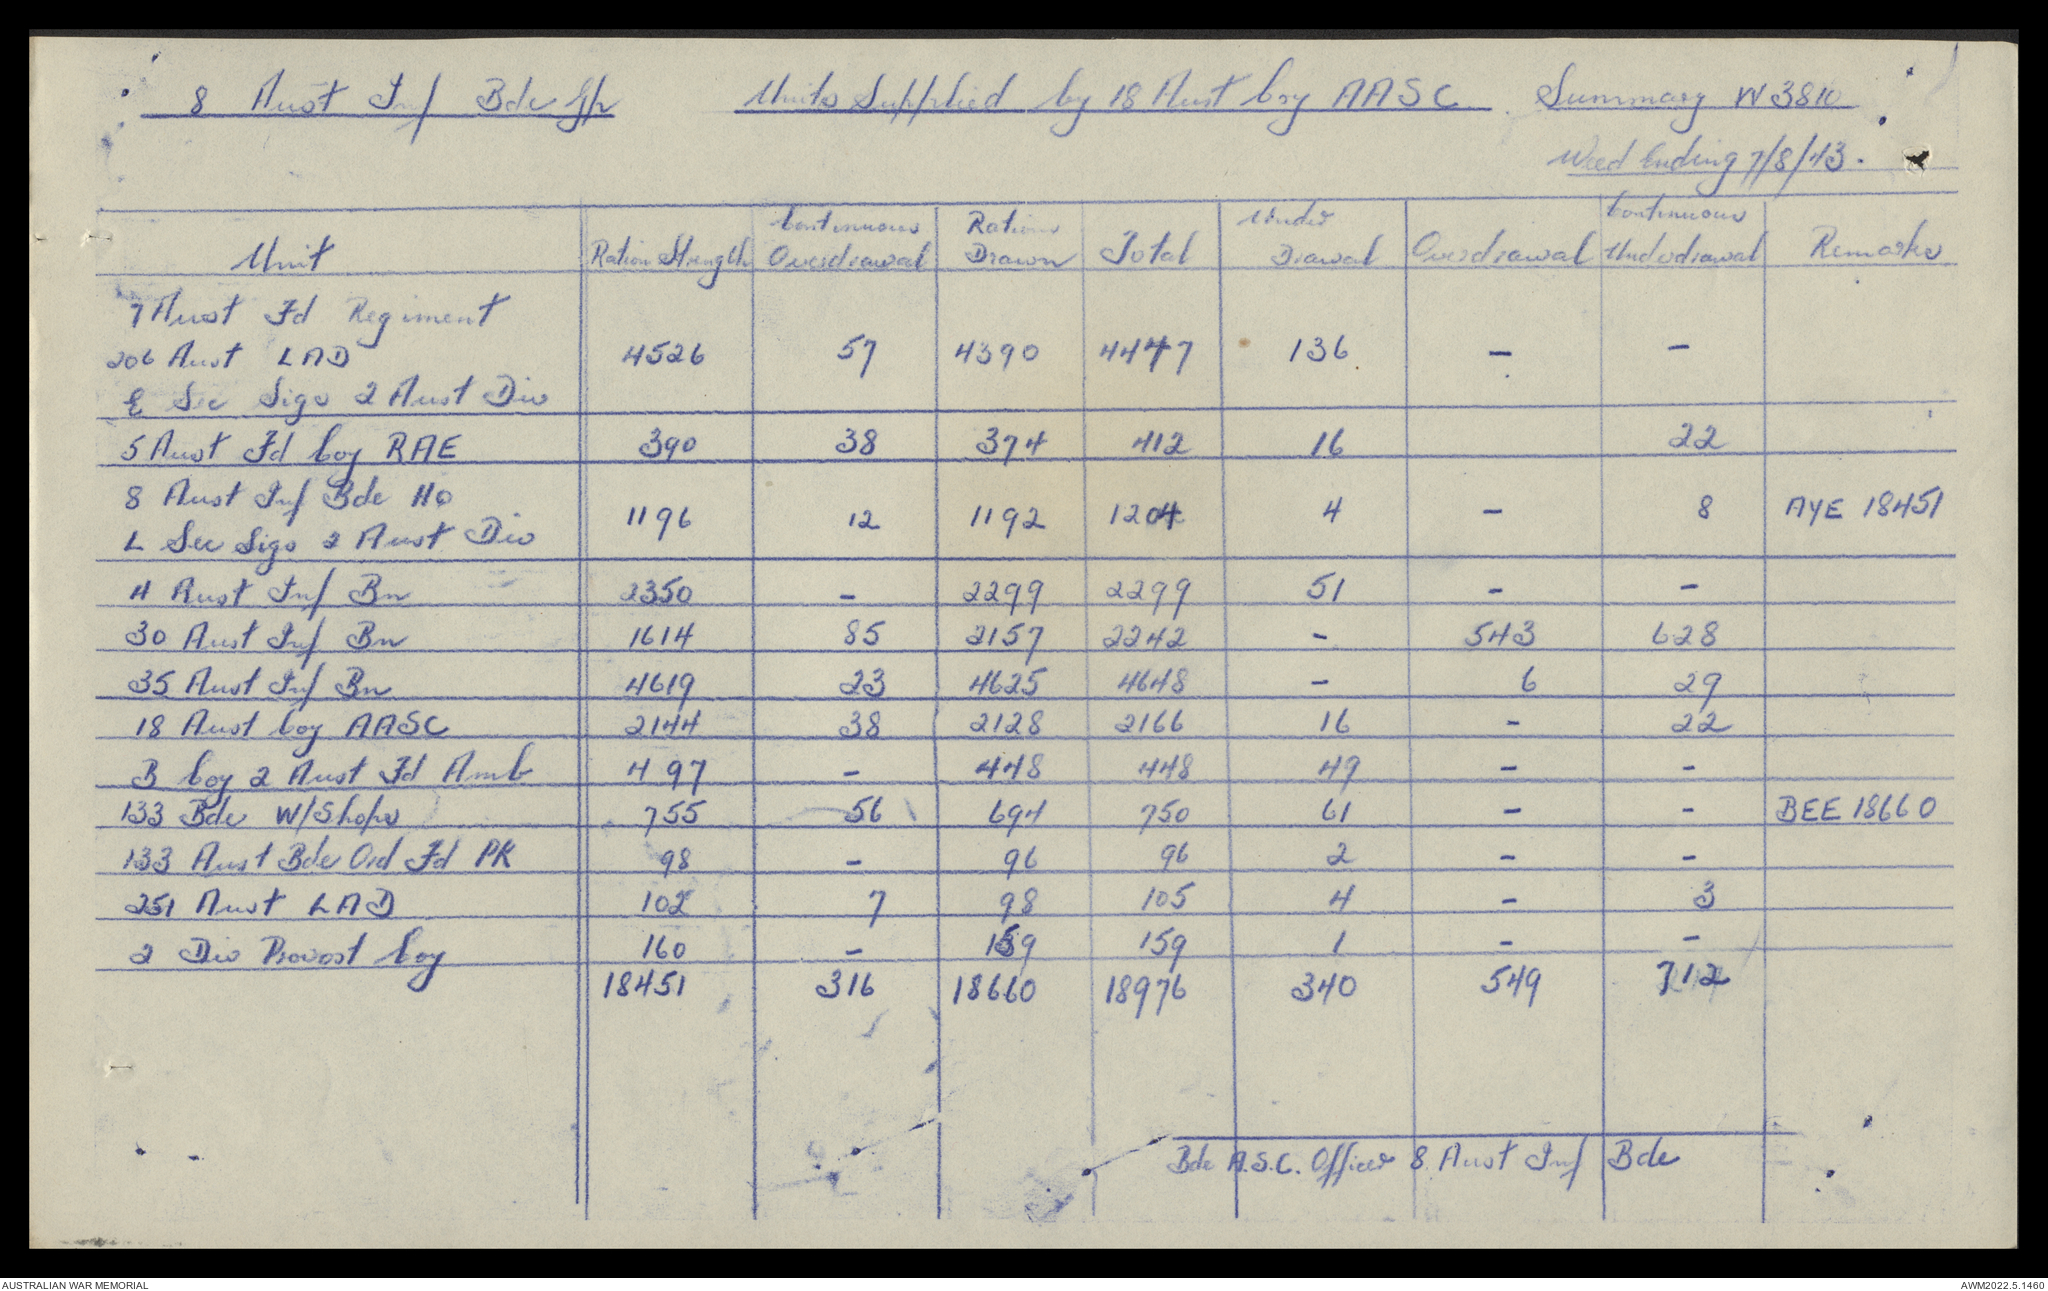 8 Aust Inf Bde Gp Units Supplied by 18 Aust Coy AASC. Summary W3810
Week Ending 7/8/43.
Unit Ration Strength Continuous Overdrawal Rations Drawn Total Under Drawal Overdrawal Continuous Underdrawal Remarks
7 Aust Fd Regiment
206 Aust LAD 4526 57 4390 4447 136 - -
E Sec Sigs 2 Aust Div
5 Aust Fd Coy RAE 390 38 374 412 16 22
8 Aust Inf Bde HQ
1196 12 1192 1204 4 - 8 AYE 18451
L Sec Sigs 2 Aust Div
4 Aust Inf Bn 2350 - 2299 2299 51 - -
30 Aust Inf Bn 1614 85 2157 2242 - 543 628
35 Aust Inf Bn 4619 23 4625 4648 - 6 29
18 Aust Coy AASC 2144 38 2128 2166 16 - 22
B Coy 2 Aust Fd Amb 497 - 448 448 49 - -
133 Bde W/Shops 755 56 694 750 61 - - BEE 18660
133 Aust Bde Ord Fd PK 98 - 96 96 2 - -
251 Aust LAD 102 7 98 105 4 - 3
2 Div Provost Coy 160 - 159 159 1 - -
18451 316 18660 18976 340 549 712
Bde A.S.C. Officer 8 Aust Inf Bde
AUSTRALIAN WAR MEMORIAL
AWM2022.5.1460